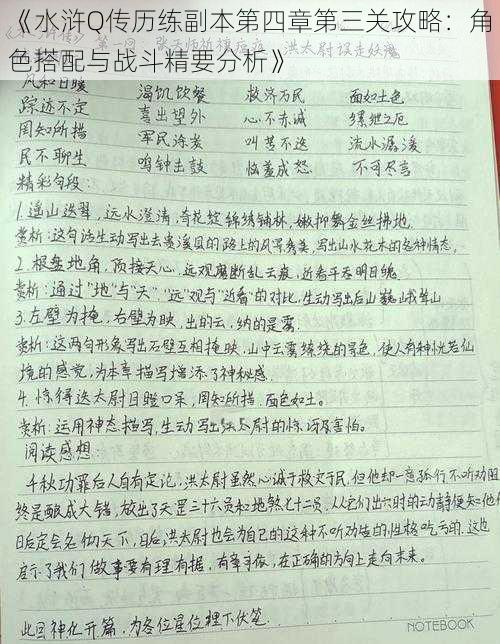 《水浒Q传历练副本第四章第三关攻略：角
色搭配与战斗精要分析》
第一回 张天师祈禳瘟疫 洪太尉误走妖魔
风和日暖
踪迹不定 渴饮饥餐 救济万民 面如土色
罔知所措 喜出望外 心不赤诚 缧绁之厄
民不聊生 军民涂炭 叫苦不迭 流水潺湲
鸣钟击鼓 恼羞成怒 不可尽言
精彩句段：
1.遥山迭翠，远水澄清，奇花绽锦绣铺林，嫩柳舞金丝拂地.
赏析：这句话生动写出去贵溪县的路上的风景秀美，写出山水花木的各种情态。
2.根盘地角，顶接天心，远观磨断乱云痕，近看平吞明月魄
赏析：通过"地"与"天"，"远"观与"近看"的对比，生动写出后山巍峨耸山
3.左壁为掩，右壁为映，出的云，纳的是雾.
赏析：这两句形象写出石壁互相掩映，山中云雾缭绕的景色，使人有种恍若仙
境的感觉，为本章描写增添了神秘感.
4.惊得洪太尉目瞪口呆，罔知所措.面色如土.
赏析：运用神态描写，生动写出洪太尉的惊讶及害怕。
阅读感想：
千秋功罪后人自有定论，洪太尉虽然心诚于救灾于民，但他却一意孤行不听劝阻
终是酿成大错，放出了天罡三十六员和地煞七十二员，从它们出穴时的动静便知
日后定会名彻天下，日后洪太尉也会为自己的这种不听劝告的性格吃亏的.这也
启示了我们做事要有理有据，有章可依，在正确的方向上走向未来。
此回神化开篇，为各位星位埋下伏笔.
NOTEBOOK